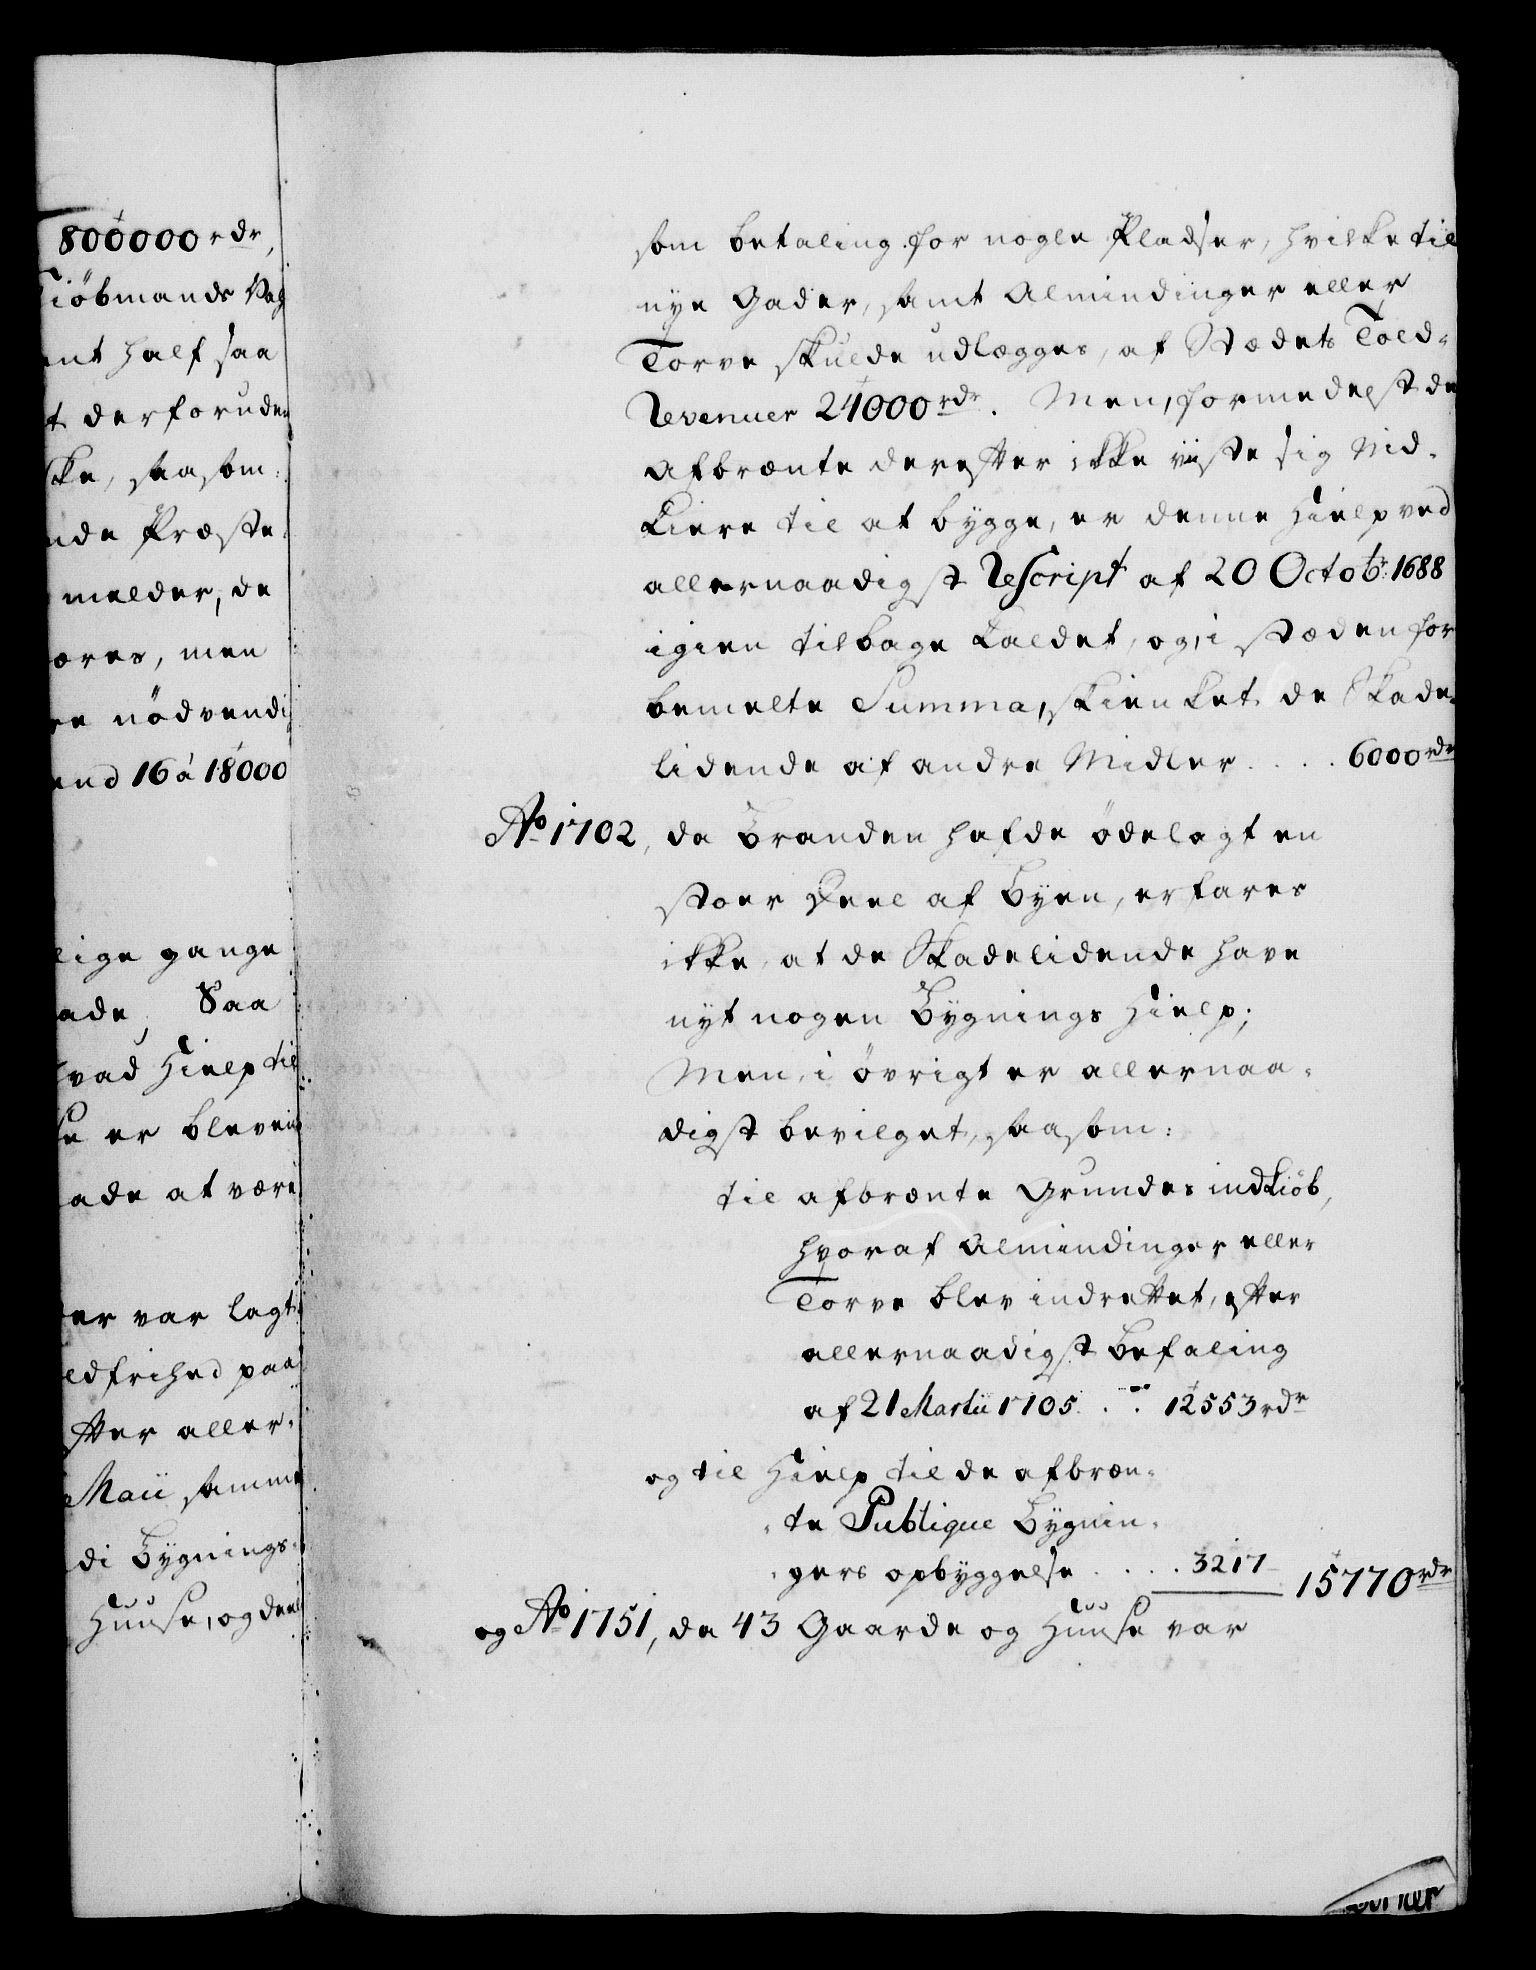 800000 rdr,
iöbmands Vag
nt half saa
t derforuden
ke, saasom:
nde Præste-
melder, de
ores, men
re nödvendi
end 16 à 18000
lige gange
ade, Saa
hvad Hielp til
se er bleven
ade at være
er var lagt
ldfrihed paa
fter aller-
Maii samme
di Bÿgnings-
Huuse, og deel
som betaling for nogle Pladser, hvilke til
nÿe Gader, samt Almindinger eller
Torve skulde udlægges, af Stædets Told-
Revenuer 24000 rdr. Men, formedelst de
Afbrænte derefter ikke viiste sig Nid-
kiere til at bÿgge, er denne Hielp ved
allernaadigst Rescript af 20 Octobr: 1688
igien tilbage kaldet, og, i stæden for
bemelte Summa, skienket de Skade-
lidende af andre Midler . . . . 6000 rdr
Ao 1702, da Branden hafde ödelagt en
stoer Deel af Bÿen, erfares
ikke, at de Skadelidende have
nÿt nogen Bÿgnings Hielp;
Men, i övrigt er allernaa-
digst bevilget, saasom:
til afbrænte Grundes indkiöb,
hvoraf Almindinger eller
Torve blev indrettet, efter
allernaadigst Befaling
af 21 Martii 1705. . . 12553 rdr
og til Hielp til de afbræn-
te Publique Bÿgnin-
gers opbÿggelse . . . . 3217 15770 rdr
og Ao 1751, da 43 Gaarde og Huuse var